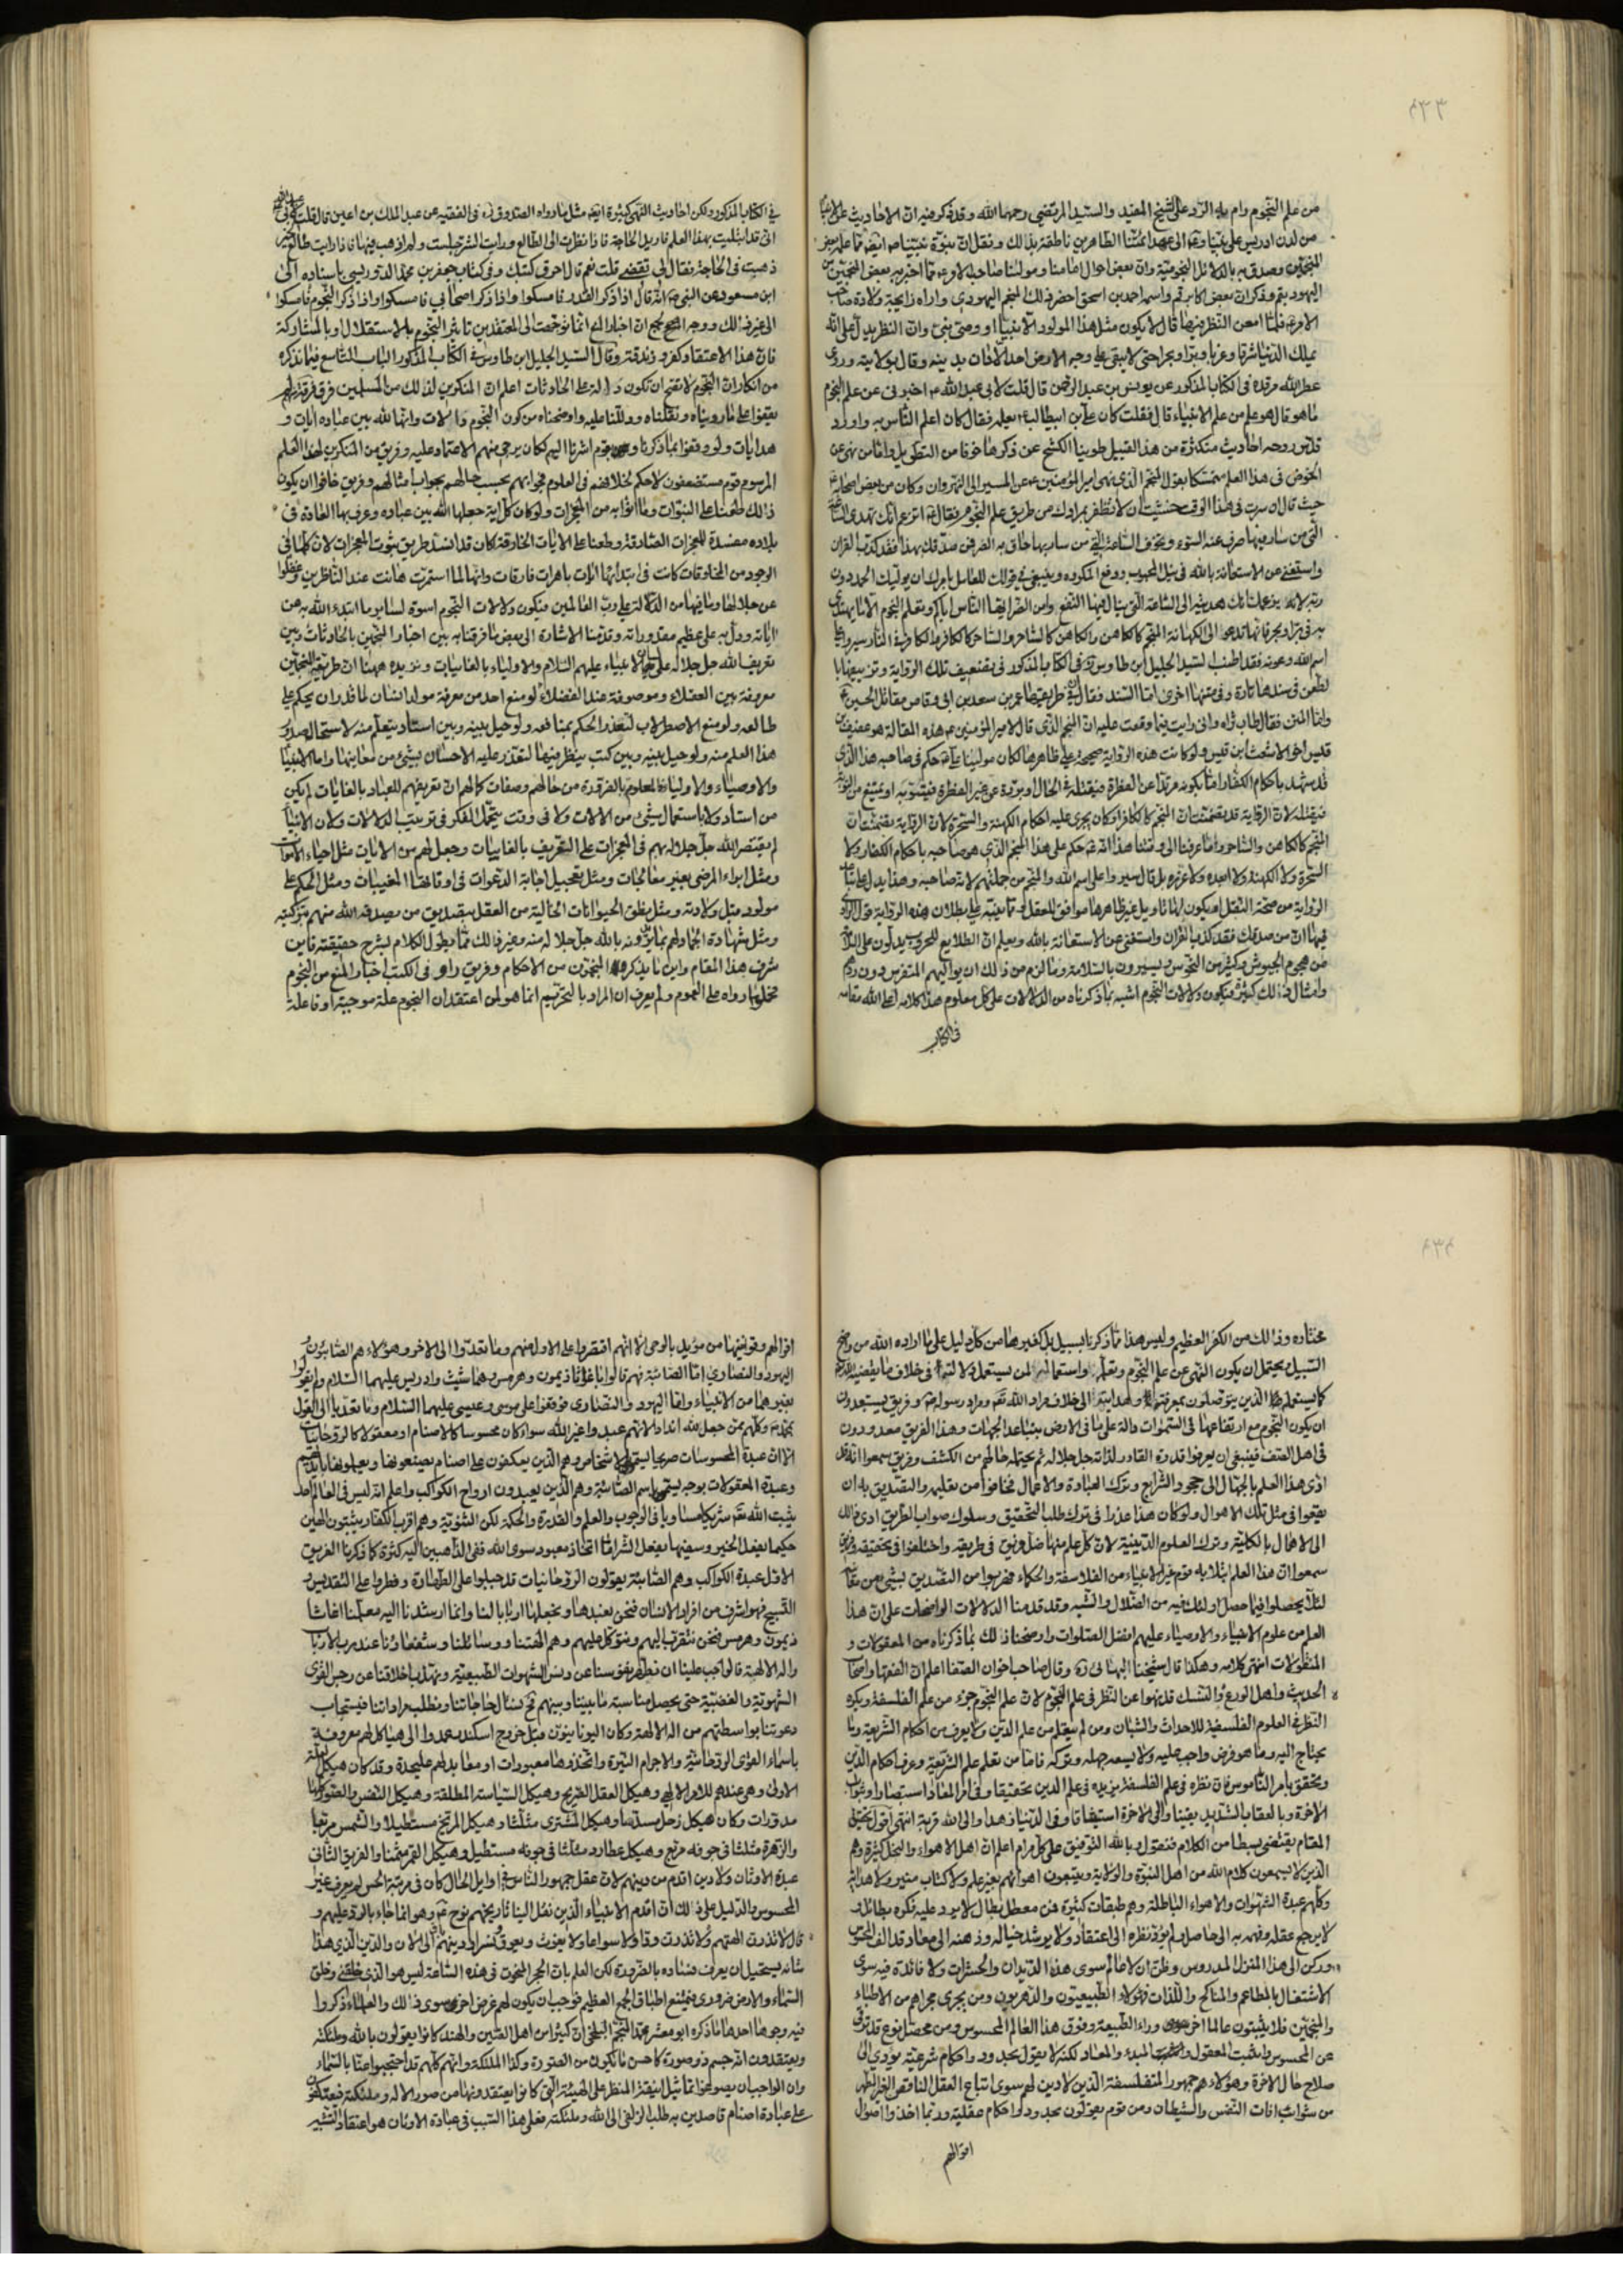 ٤٣٣
من علم النجوم وام بله الرد على الشيخ المفيد والسيد المرتضى رحمهما الله وقد ذكر فيه ان الاحاديث
من لدن ادريس على نبينا وآله الى عهد ائمتنا الطاهرين ناطقة بذالك ونقل ان نبوة نبينا ايضا مما علمه بعض
المنجمين وصدق به بالدلائل النجومية وان بعض احوال امامنا ومولينا صاحب الامر مما اخبر به بعض المنجمين من
اليهود بقم وذكر ان بعض اكابر قم واسمه احمد بن اسحق احضر ذلك المنجم اليهودى واراه زايجة ولادة صاحب
الامر فلما امعن النظر فيها قال لا يكون مثل هذا المولود الا نبيا او وصى نبى وان النظر يدل على انه
يملك الدنيا شرقا وغربا وبرا وبحرا حتى لا يبقى على وجه الارض احد الا دان بدينه وقال بولايته وروى
عطر الله مرقده فى الكتاب المذكور عن يونس بن عبد الرحمن قال قلت لابى عبد الله ع اخبرنى عن علم النجوم
ما هو قال هو علم من علم الانبياء قال فقلت كان على بن ابيطالب ع يعلمه فقال كان اعلم الناس به واورد
قدس روحه احاديث متكثرة من هذا القبيل طوينا الكشح عن ذكرها خوفا من التطويل واما من نهى عن
الخوض فى هذا العلم متمسكا بقول المنجم الذى نهى امير المؤمنين ع عن المسير الى النهروان وكان من بعض اصحابه
حيث قال ان سرت فى هذا الوقت خشيت ان لا تظفر بمرادك من طريق علم النجوم فقال ع اتزعم انك تهدى الساعة
التى من سار فيها صرف عنه السوء وتخوف الساعة التى من سار بها حاق به الضر فمن صدقك بهذا فقد كذب القران
واستغنى عن الاستعانة بالله فى نيل المحبوب ودفع المكروه وينبغى فى قولك للعامل بامرك ان يوليك الحمد دون
ربه لانك بزعمك انك هديته الى الساعة التى ينال فيها النفع وامن الضر ايها الناس اياكم وتعلم النجوم الا ما يهتدى
به فى بر او بحر فانها تدعو الى الكهانة المنجم كالكاهن والكاهن كالساحر والساحر كالكافر والكافر فى النار سيروا على
اسم الله وعونه فقد اطنب السيد الجليل ابن طاوس ره فى الكتاب المذكور فى تضعيف تلك الرواية وتزييفها با
لطعن فى سندها تارة وفى متنها اخرى اما السند فقال فى طريقها عمر بن سعد بن ابى وقاص مقاتل الحسين ع
واما المتن فقال طاب ثراه وانى رايت فيما وقعت عليه ان المنجم الذى قال لامير المؤمنين ع هذه المقالة هو عفيف بن
قيس اخو الاشعث ابن قيس ولو كانت هذه الرواية صحيحة على ظاهرها لكان مولينا على ع حكم فى صاحبه هذا الذى
قد شهد باحكام الكفار اما بكونه مرتدا عن الفطرة فيقتله فى الحال او بردة عن غير الفطرة فيتوبه او يمتنع من التوبة
فيقتله لان الرواية قد تضمنت ان المنجم كالكافر او كان يجرى عليه احكام الكهنة والسحرة لان الرواية تضمنت ان
المنجم كالكاهن والساحر وما عرفنا الى وقتنا هذا انه ع حكم على هذا المنجم الذى هو صاحبه باحكام الكفار ولا
السحرة ولا الكهنة ولا ابعده ولا عزره بل قال سيروا على اسم الله والمنجم من جملتهم لانه صاحبه وهذا يدل على تباعد
الرواية من صحة النقل او يكون لها تاويل غير ظاهرها موافق للعقل ومما ينبه على بطلان هذه الرواية قول الراوى
فيها ان من صدقك فقد كذب بالقران واستغنى عن الاستعانة بالله ويعلم ان الطلايع للحروب يدلون على السلامة
من هجوم الجيوش وكثير من النحوس ويبشرون بالسلامة وما لزم من ذالك ان يواليهم المتفرس دون ربهم
وامثال ذلك كثيرة فتكون دلالات النجوم اشبه بما ذكرناه من الدلالات على كل معلوم هذا كلامه اعلى الله مقامه
فى الكتاب
فى الكتاب المذكور ولكن احاديث النهى كثيرة ايضا مثل ما رواه الصدوق ره فى الفقيه عن عبد الملك بن اعين قال قلت
انى قد ابتليت بهذا العلم فاريد الحاجة فاذا نظرت الى الطالع ورايت الشر جلست ولم اذهب فيها فاذا رايت طالع الخير
ذهبت فى الحاجة فقال لى تقضى قلت نعم قال احرق كتبك وفى كتاب جعفر بن محمد الدوريستى باسناده الى
ابن مسعود عن النبى ص انه قال اذا ذكر القدر فامسكوا واذا ذكر اصحابى فامسكوا واذا ذكر النجوم فامسكوا
الى غير ذلك ووجه الجمع ان اخبار النهى انما توجهت الى المعتقدين تاثير النجوم بالاستقلال او بالمشاركة
فان هذا الاعتقاد كفر وزندقة وقال السيد الجليل ابن طاوس فى الكتاب المذكور الباب التاسع فيما نذكره
من انكار ان النجوم لا تصح ان تكون دالة على الحادثات اعلم ان المنكرين لذلك من المسلمين فرق فرقة لم
يقفوا على ما رويناه ونقلناه ودللنا عليه واوضحناه من كون النجوم دالالات وانها لله بين عباده ايات و
هدايات ولو وقفوا بما ذكرنا وقوم اشرنا اليهم لكان يرجى منهم الاعتماد عليه وفريق من المنكرين لهذا العلم
المرسوم قوم مستضعفون لا حكم لخلافهم فى العلوم فجوابهم بحسب حالهم بجواب امثالهم وفريق خافوا ان يكون
ذالك طعنا على النبوات وما اتوا به من المعجزات ولو كان كل آية جعلها الله بين عباده وعرف بها العادة فى
بلاده مفسدة للمعجزات الصادقة وطعنا على الايات الخارقة كان قد انسد طريق ثبوت المعجزات لان كلما فى
الوجود من المخلوقات كانت فى ابتدائها ايات باهرات فارقات وانها لما استمرت هانت عند الناظرين وغفلوا
عن جلالتها وما فيها من الدلالة على رب العالمين فيكون دلالات النجوم اسوة لساير ما ابتدء الله به من
اياته ودل به على عظيم مقدوراته وقدمنا الاشارة الى بعض ما فرقنا به بين اخبار المنجمين بالحادثات وبين
تعريف الله جل جلاله على لسان الانبياء عليهم السلام والاولياء بالغايبات ونزيده ههنا ان طريقة المنجمين
معروفة بين العقلاء وموصوفة عند الفضلاء لو منع احد من معرفة مولد انسان لما قدر ان يحكم على
طالعه ولو منع الاصطرلاب لتعذر الحكم بمنافعه ولو حيل بينه وبين استاد يتعلم منه لاستحال صدور
هذا العلم منه ولو حيل بينه وبين كتب ينظر فيها لتعذر عليه الاحسان بشئ من معانيها واما الانبيا
والاوصياء والاولياء فالمعلوم بالضرورة من حالهم وصفات كمالهم ان تعريفهم للعباد بالغايبات لم يكن
من استاد ولا باستعمال شئ من الالات ولا فى وقت يتحمل الفكر فى ترتيب الدلالات ولان الانبيا
لم يقتصر الله جل جلاله بهم فى المعجزات على التعريف بالغايبات وجعل لهم من الايات مثل احياء الاموات
ومثل ابراء المرضى بغير معالجات ومثل تعجيل اجابة الدعوات فى اوقاتها المغيبات ومثل الحكم على
مولود قبل ولادته ومثل نطق الحيوانات الخالية من العقل بتصديق من يصدقه الله منهم وتزكيته
ومثل شهادة الجماد لهم بما يؤدونه بالله جل جلاله منه وغير ذالك مما يطول الكلام بشرح حقيقته فاين
شرف هذا المقام واين ما يذكره المنجمون من الاحكام وفريق راو فى الكتب اخبار المنع من النجوم
فحملوا ما رواه على العموم ولم يعرف ان المراد بالتحريم انما هو لمن اعتقد ان النجوم علة موجبة او فاعلة
٤٣٤
مختاره وذالك من الكفر العظيم وليس هذا مما ذكرنا بسبيل بل كغيرها من كل دليل على ما اراده الله من واضح
السبيل ويحتمل ان يكون النهى عن علم النجوم وتعلمه واستعماله لمن يستعمل دلالتها فى خلاف ما يقتضيه الله
كما يستعمله الذين يتوصلون بمعرفتها وهدايتها الى خلاف مراد الله تعه ومراد رسوله ص وفريق يستبعدون
ان يكون النجوم مع ارتفاعها فى السموات دالة على ما فى الارض بتباعد الجهات وهذا الفريق معدودون
فى اهل العتف فينبغى ان يعرفوا قدرة القادر لذاته جل جلاله ثم يحتمله حالهم من الكشف وفريق سمعوا انه قد
ادى هذا العلم بالجهال الى جحود الشرايع وترك العبادة والاعمال فخافوا من تعليمه والتصديق به ان
يقعوا فى مثل تلك الاهوال ولو كان هذا عذرا فى ترك طلب التحقيق وسلوك صواب الطريق ادى ذالك
الى الاهمال بالكلية وترك العلوم الدينية لان كل علم منها ضل فريق فى طريقه واختلفوا فى تحقيقه وفريق
سمعوا ان هذا العلم ابتلا به قوم غير الانبياء من الفلاسفة والحكماء فهربوا من التصديق بشئ من مقالهم
لئلا يحصلوا فيما حصل اولئك فيه من الضلال والشبه وقد قدمنا الدلالات الواضحات على ان هذا
العلم من علوم الانبياء والاوصياء عليهم افضل الصلوات واوضحنا ذالك بما ذكرناه من المعقولات و
المنقولات انتهى كلامه وهكذا قال شيخنا البهائى ره وقال صاحب اخوان الصفا اعلم ان الفقهاء واصحاب
الحديث واهل الورع والنسك قد نهوا عن النظر فى علم النجوم لان علم النجوم جزء من علم الفلسفة ويكره
النظر فى العلوم الفلسفية للاحداث والشبان ومن لم يتعلم من علم الدين ولا يعرف من احكام الشريعة وما
يحتاج اليه وما هو فرض واجب عليه ولا يسعه جهله وتركه فاما من تعلم علم الشريعة وعرف احكام الدين
وتحقق بامر الناموس فان نظره فى علم الفلسفة يزيده فى علم الدين تحقيقا وفى امر المعاد استبصارا وبثواب
الاخرة وبالعقاب الشديد يقينا والى الاخرة اشتياقا وفى الدنيا زهدا والى الله قربة انتهى اقول تحقيق
المقام يقتضى بسطا من الكلام فنقول وبالله التوفيق على كل مرام اعلم ان اهل الاهواء والنحل كثيرة وهم
الذين لا يسمعون كلام الله من اهل النبوة والولاية ويتبعون اهوائهم بغير علم ولا كتاب منير ولا هداية
وكلهم عبدة الشهوات والاهواء الباطلة وهم طبقات كثيرة فمن معطل بطال لا يرد عليه فكره بطائل و
لا يرجع عقله وفهمه به الى حاصل ولم يؤد نظره الى اعتقاد ولا يرشد خياله وذهنه الى معاد قد الف المحسوس
وركن الى هذا المنزل المدروس وظن ان لا عالم سوى هذه الديدان والحشرات ولا فائدة فيه سوى
الاشتغال بالمطاعم والمناكح واللذات فهؤلاء الطبيعيون والدهريون ومن يجرى مجراهم من الاطباء
والمنجمين فلا يثبتون عالما اخر وراء الطبيعة وفوق هذا العالم المحسوس ومن محصل نوع قد ترقى
عن المحسوس واثبت المعقول والمبدء والمعاد لكنه لا يقول بحدود واحكام شرعية يؤدى الى
صلاح حال الاخرة وهؤلاء هم جمهور المتفلسفة الذين لا دين لهم سوى اتباع العقل الناقص الغير المطهر
من شوائب افات النفس والشيطان ومن قوم يقولون بحدود واحكام عقلية وربما اخذوا اصول
اقوالهم
اقوالهم وقوانينها من مؤيد بالوحى الا انهم اقتصروا على الاول منهم وما تعدوا الى الاخر وهؤلاء هم الصابئون و
اليهود والنصارى اما الصابئة فهم قالوا باغاثاذيمون وهرمس وهما شيث وادريس عليهما السلام ولم يقولوا
بغيرهما من الانبياء واما اليهود والنصارى فوقفوا على موسى وعيسى عليهما السلام وما تعديا الى القول
بمحمد ص وكلهم ممن جعل لله اندادا لانهم عبدوا غير الله سواء كان محسوسا كالاصنام او معقولا كالروحانيات
الا ان عبدة المحسوسات صريحا يسمون اشخاص وهم الذين يعكفون على اصنام يصنعونها ويعملونها بايديهم
وعبدة المعقولات بوجه يسمى باسم الصابئة وهم الذين يعبدون ارواح الكواكب واعلم انه ليس فى العالم احد
يثبت الله تعه شريكا مساويا فى الوجوب والعلم والقدرة والحكمة لكن الثنوية وهم اقرب الكفار يثبتون الهين
حكيما يفعل الخير وسفيها يفعل الشر اما اتخاذ معبود سوى الله ففى الذاهبين اليه كثرة كما ذكرنا الفريق
الاول عبدة الكواكب وهم الصابئة يقولون الروحانيات قد جبلوا على الطهارة وفطروا على التقديس و
التسبيح فهو اشرف من افراد الانسان فنحن نعبدها ونجعلها اربابا لنا وانما ارشدنا اليه معلمنا اغاثا
ذيمون وهرمس فنحن نتقرب اليهم ونتوكل عليهم وهم الهتنا ووسائلنا وشفعاؤنا عند رب الارباب
واله الالهة فالواجب علينا ان نطهر نفوسنا عن دنس الشهوات الطبيعية ونهذب اخلاقنا عن رجس القوى
الشهوية والغضبية حتى يحصل مناسبة ما بيننا وبينهم فحينئذ نسال حاجاتنا ونطلب مراداتنا فيستجاب
دعوتنا بواسطتهم من اله الالهة وكان اليونانيون قبل خروج اسكندر عمدوا الى هياكل لهم معروفة
باسماء القوى الروحانية والاجرام النيرة واتخذوها معبودات او معابد لهم عليحدة وقد كان هيكل العلة
الاولى وهى عندهم للامر الالهى وهيكل العقل الصريح وهيكل السياسة المطلقة وهيكل النفس والصورة
مدورات وكان هيكل زحل مسدسا وهيكل المشترى مثلثا وهيكل المريخ مستطيلا والشمس مربعا
والزهرة مثلثا فى جوفه مربع وهيكل عطارد مثلثا فى جوفه مستطيل وهيكل القمر مثمنا والفريق الثانى
عبدة الاوثان ولا دين اقدم من دينهم لان عقل جمهور الناس فى اوايل الحال كان فى مرتبة الحس لم يعرف غير
المحسوس والدليل على ذلك ان اقدم الانبياء الذين نقل الينا تاريخهم نوح ع وهو انما جاء بالرد عليهم و
قال لا تذرن الهتكم ولا تذرن ودا ولا سواعا ولا يغوث ويعوق ونسرا ودينهم باق الى الان والدين الذى هذا
شانه يستحيل ان يعرف فساده بالضرورة لكن العلم بان الحجر المنحوت فى هذه الساعة ليس هو الذى خلقنى وخلق
السماء والارض ضرورى فيمتنع اطباق الجمع العظيم فوجب ان يكون لهم غرض اخر سوى ذالك والعلماء ذكروا
فيه وجوها احدها ما ذكره ابو معشر محمد المنجم البلخى ان كثيرا من اهل الصين والهند كانوا يقولون بالله وملئكته
ويعتقدون انه جسم ذو صورة كاحسن ما يكون من الصورة وكذا الملئكة وانهم كلهم قد احتجبوا عنا بالسماء
وان الواجب ان يصوغوا تماثيل انيقة المنظر على الهيئة التى كانوا يعتقدونها من صور الاله وملئكته فيعتكفون
على عبادة اصنام قاصدين به طلب الزلفى الى الله وملئكته فعلى هذا السبب فى عبادة الاوثان هو اعتقاد التشبيه